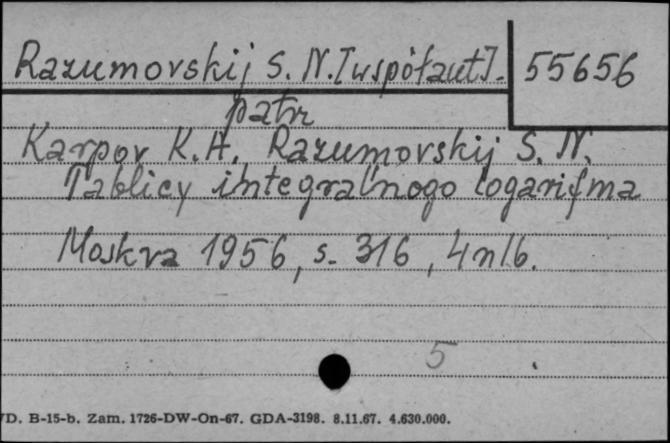 Razumovskij S. N. [współaut]. 55656
patrz
Karpov K. A. Razumovskij S. N.
Tablicy integral'nogo logarifma
Moskva 1956, s. 316, 4 nlb.
5
D. B-15-b. Zam. 1726-DW-On-67. GDA-3198. 8.11.67. 4.630.000.